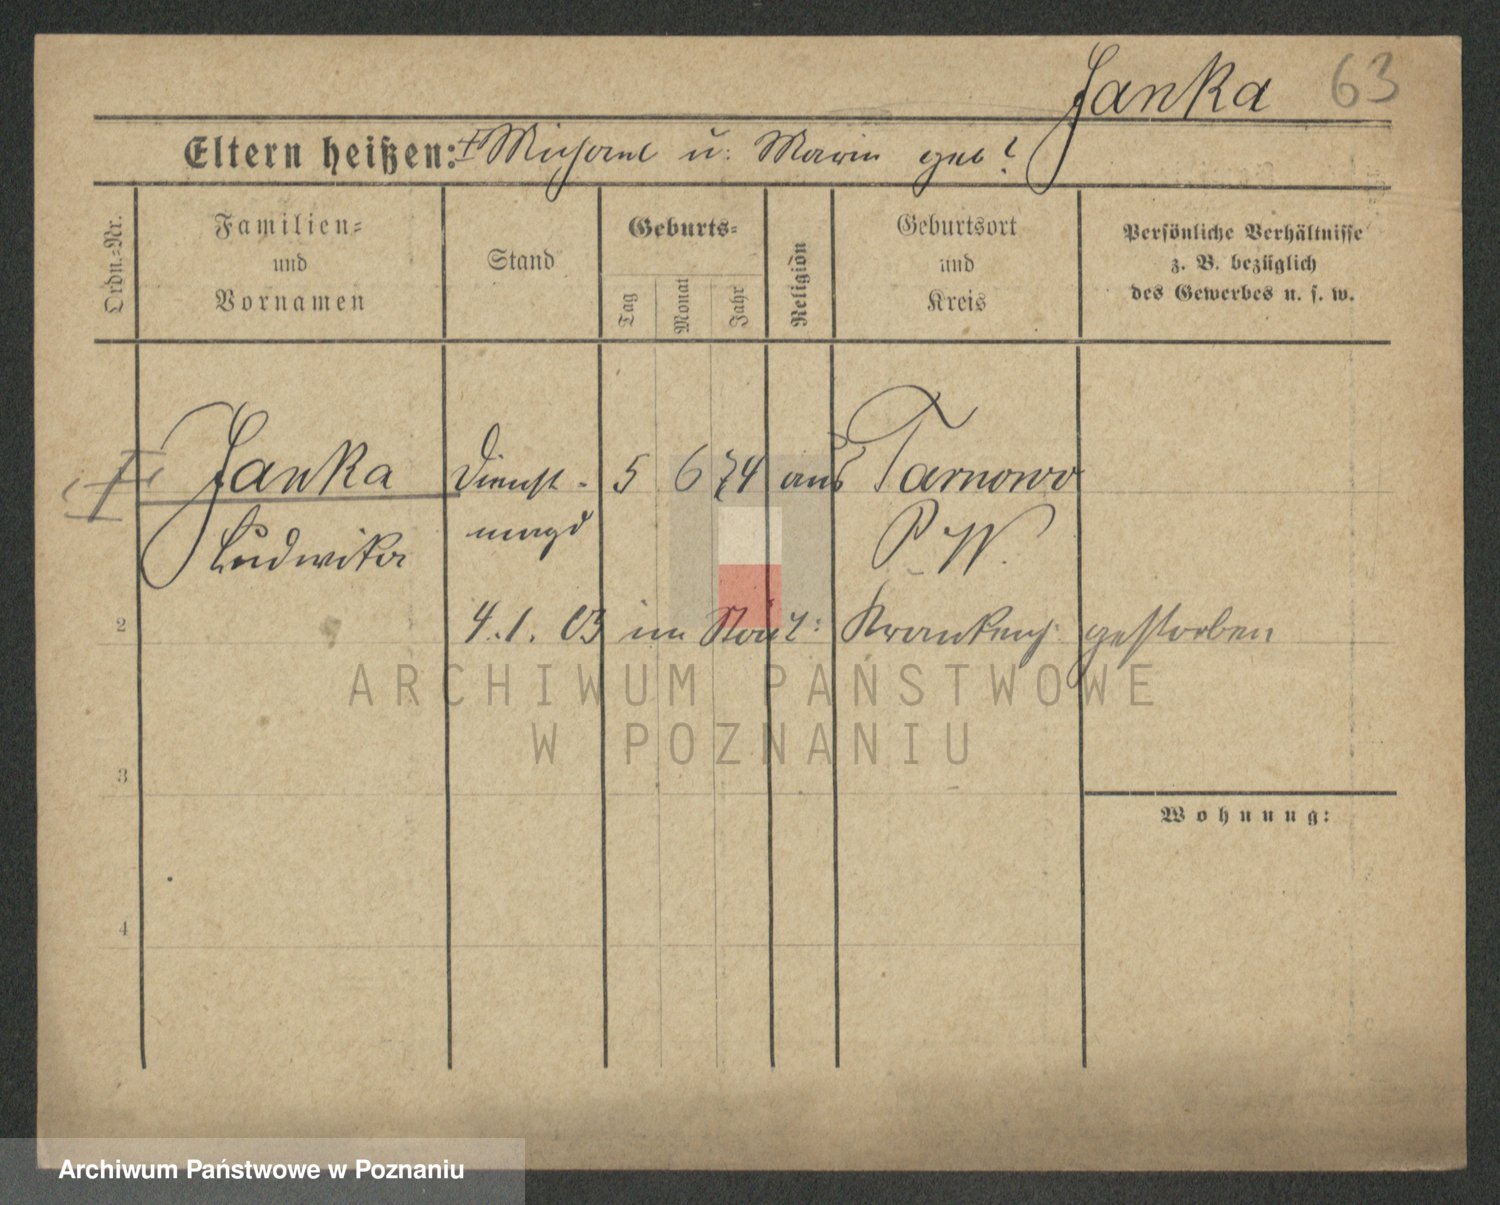 Janka 63
Eltern heißen: Michael u: Marie geb?
Ordn.=Nr.
Familien=
und
Vornamen
Stand
Geburts=
Tag
Monat
Jahr
Religion
Geburtsort
und
Kreis
Persönliche Verhältnisse
z. B. bezüglich
des Gewerbes u. s. w.
Janka Dienst- 5 6 74 aus Tarnowo
Ludwika magd P. W.
2 4.1.03 im Stdt: Krankenh. gestorben
ARCHIWUM PAŃSTWOWE
W POZNANIU
3
Wohnung:
4
Archiwum Państwowe w Poznaniu